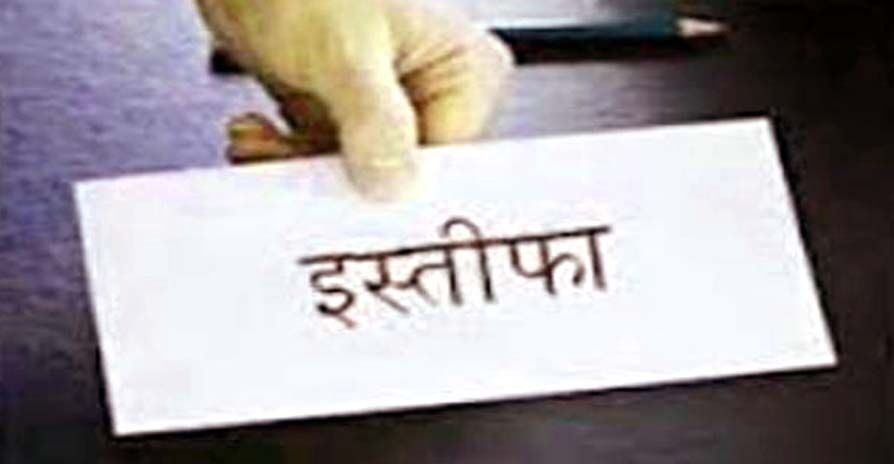 इस्तीफा